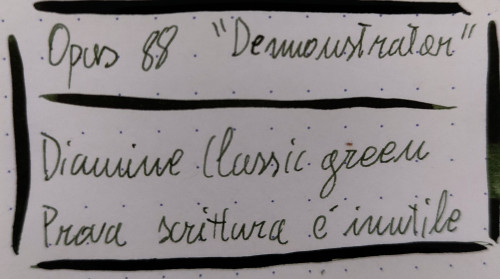 Opus 88 "Demonstrator"
Diamine Classic green
Prova scrittura è inutile